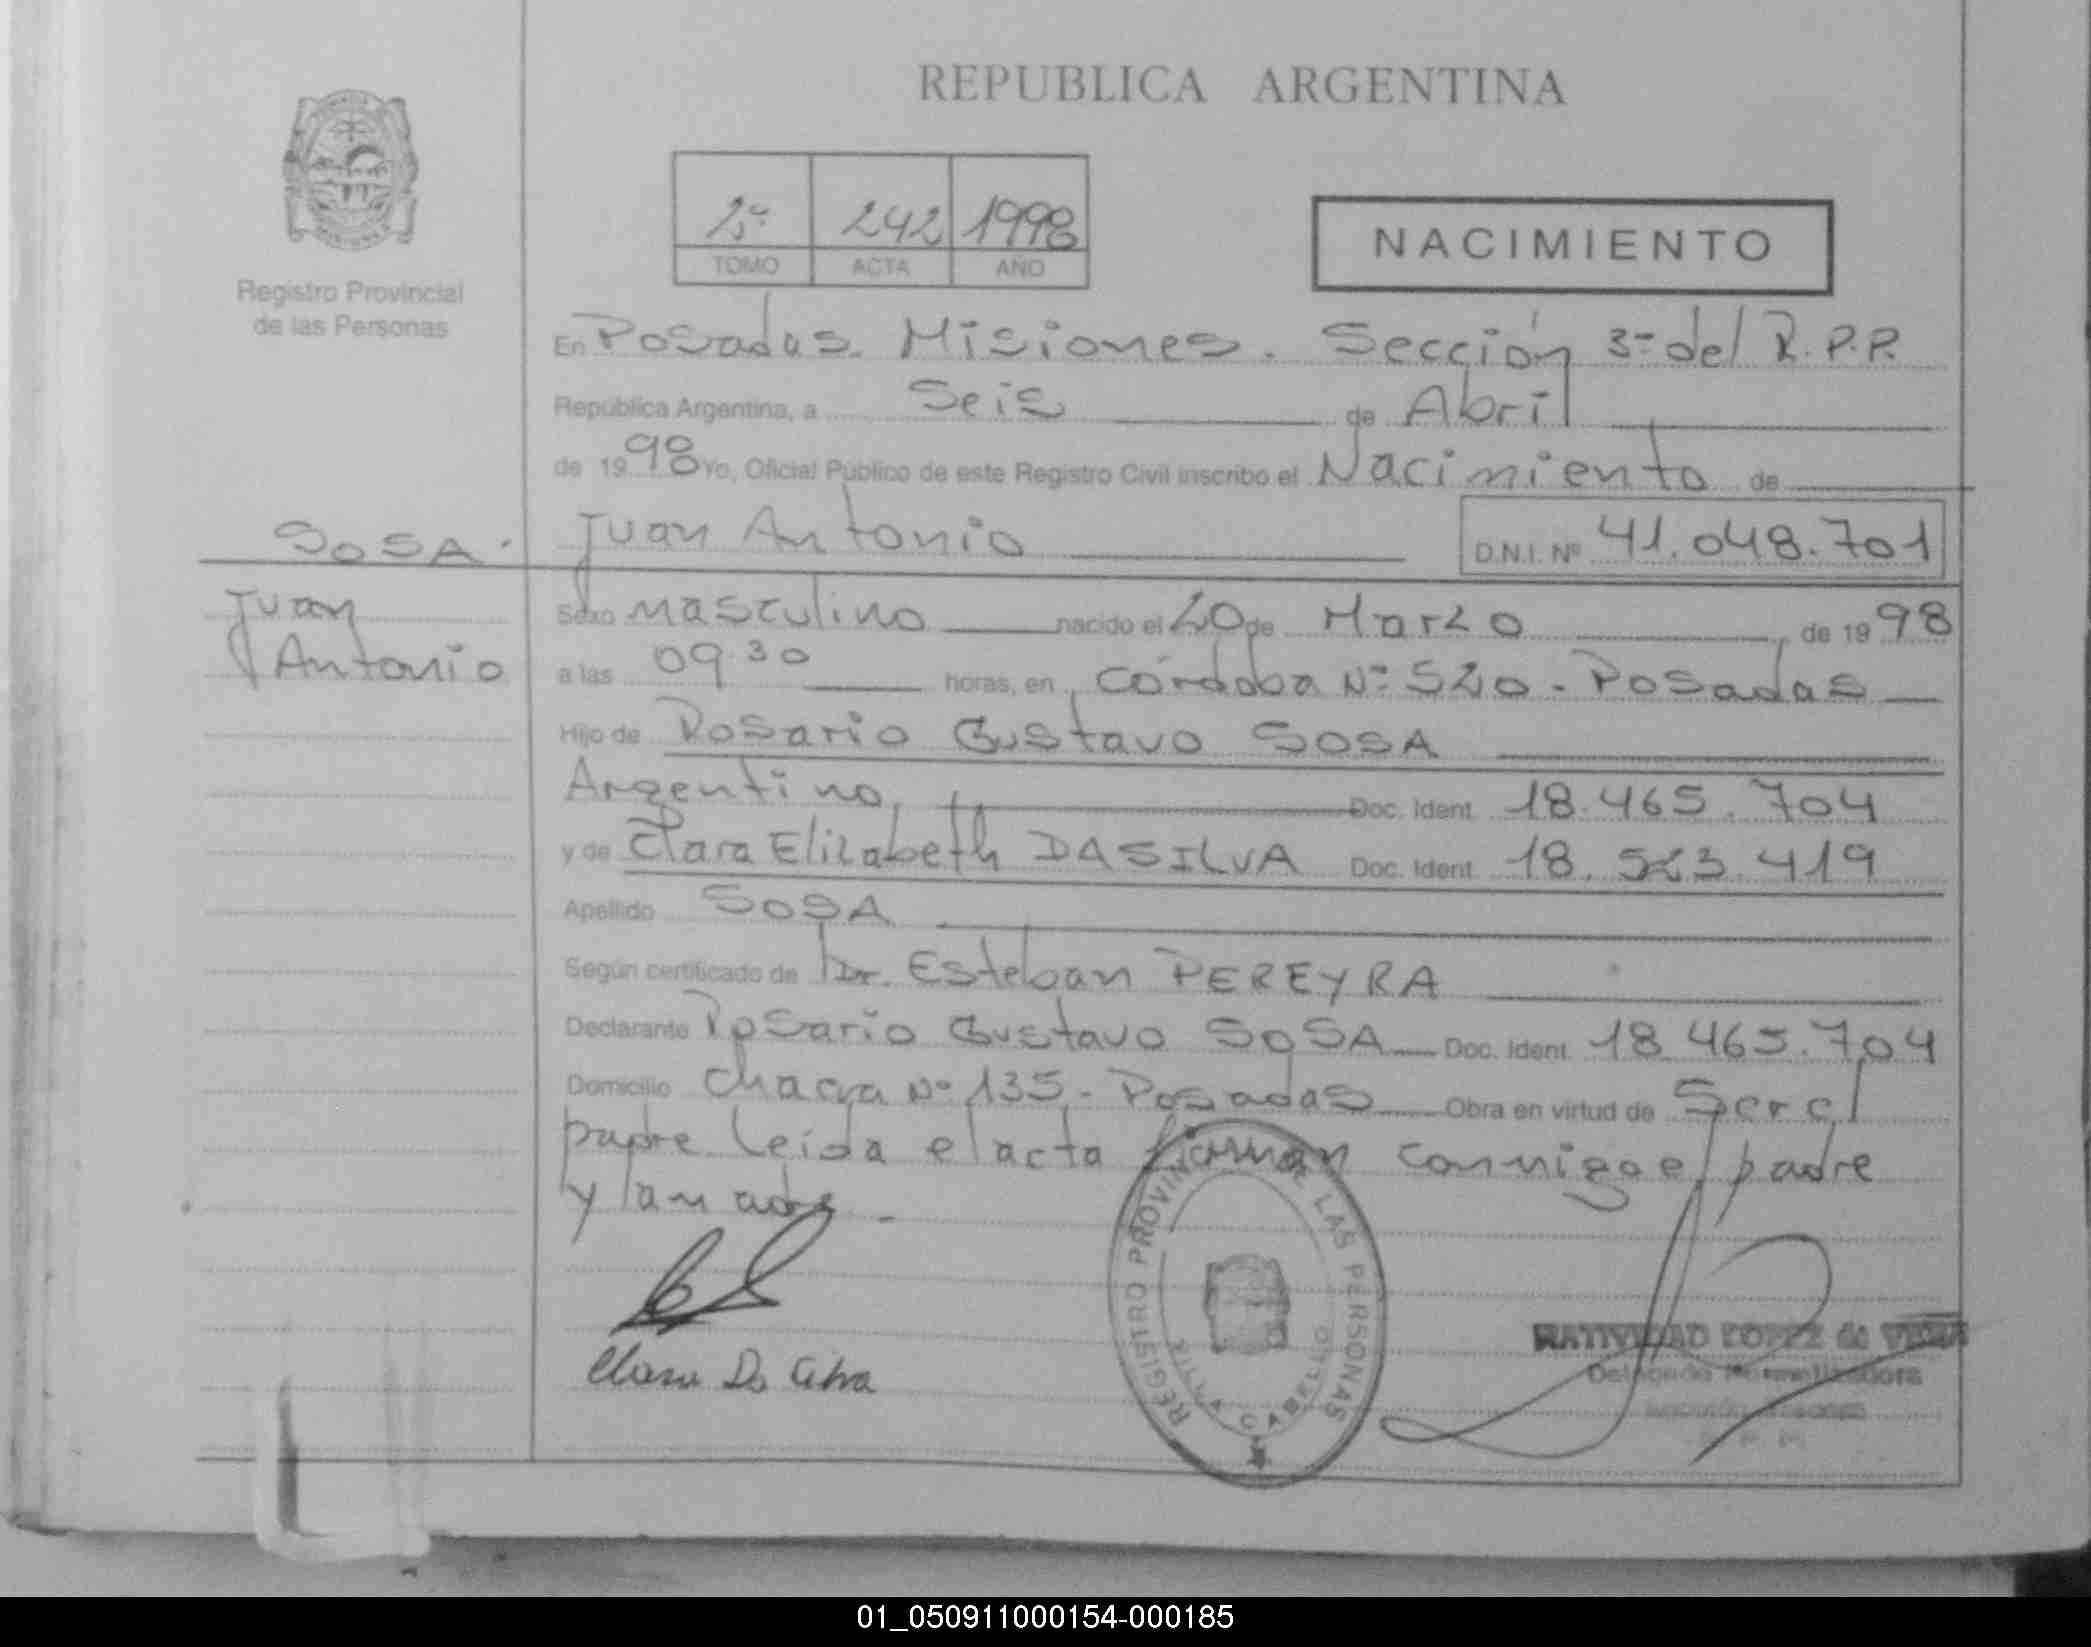 REPUBLICA ARGENTINA
2º 242 1998
TOMO ACTA AÑO
NACIMIENTO
Registro Provincial
de las Personas
En Posadas. Misiones. Sección 3ª del R.P.P.
República Argentina, a Seis de Abril
de 1998 Yo, Oficial Público de este Registro Civil inscribo el Nacimiento de
SOSA. Juan Antonio D.N.I. Nº 41.048.701
Juan
Antonio
Sexo masculino nacido el 20 de Marzo de 1998
a las 09.30 horas, en Córdoba Nº 520 - Posadas
Hijo de Rosario Gustavo SOSA
Argentino, Doc. Ident. 18.465.704
y de Clara Elizabeth DASILVA Doc. Ident. 18.523.419
Apellido SOSA
Según certificado de Dr. Esteban PEREYRA
Declarante Rosario Gustavo SOSA Doc. Ident. 18.465.704
Domicilio Chacra Nº 135 - Posadas Obra en virtud de Ser el
padre Leida el acta firman conmigo el padre
y la madre -
REGISTRO PROVINCIAL DE LAS PERSONAS
VILLA CABELLO
NATIVIDAD LOPEZ de
Delegada Normalizadora
01_050911000154-000185